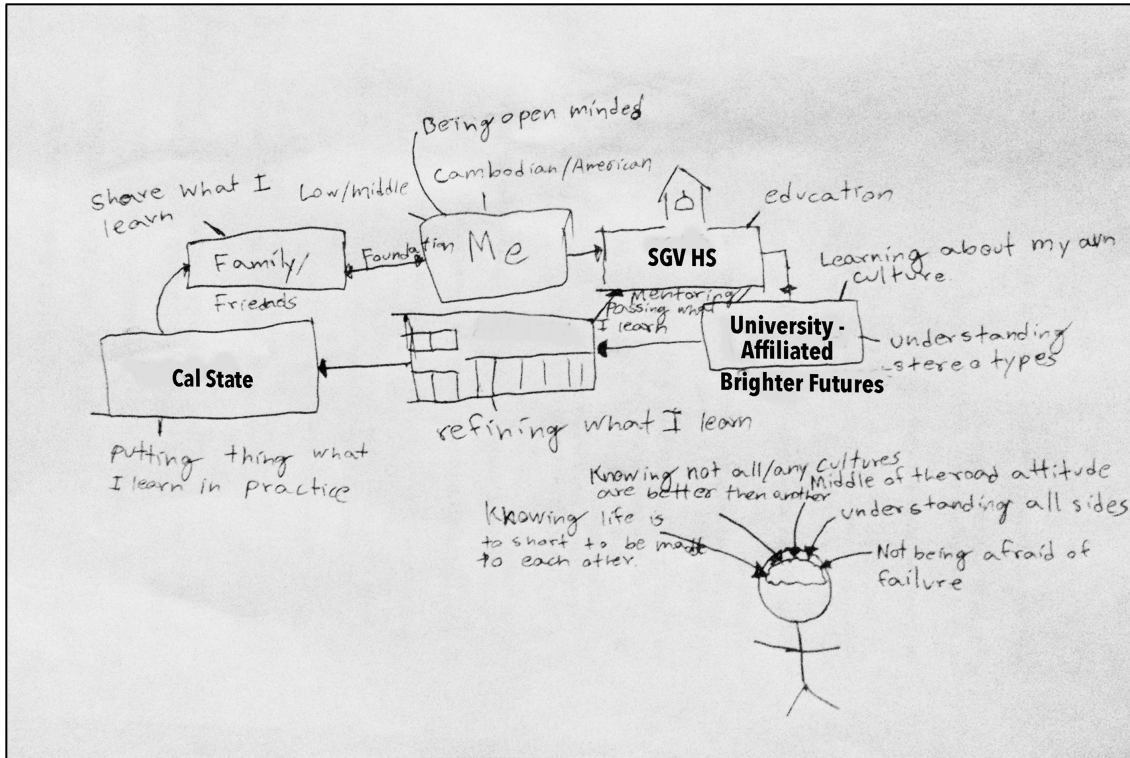 Being open minded
Cambodian/American
Low/middle
Share what I
learn
education
Family/
Friends
Foundation
Me
SGV HS
Learning about my own
culture.
Mentoring/
Passing what
I learn
University -
Affiliated
Brighter Futures
understanding
stereotypes
Cal State
refining what I learn
Putting thing what
I learn in practice
Knowing not all/any cultures
are better then another
Middle of the road attitude
understanding all sides
Knowing life is
to short to be
to each other.
Not being afraid of
failure